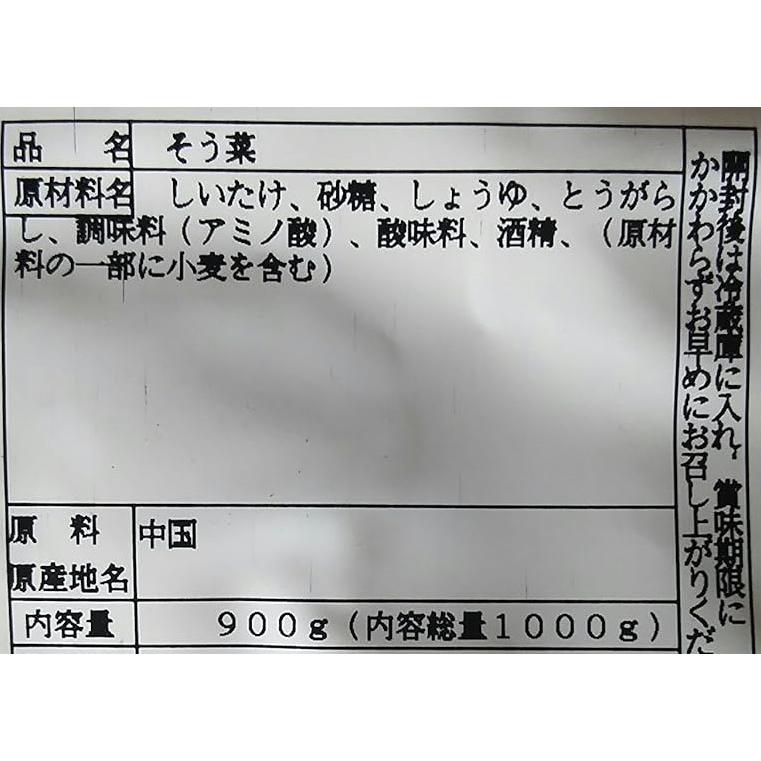 品　名　そう菜
原材料名　しいたけ、砂糖、しょうゆ、とうがら
し、調味料（アミノ酸）、酸味料、酒精、（原材
料の一部に小麦を含む）
原　料　中国
原産地名
内容量　９００ｇ（内容総量１０００ｇ）
開封後は冷蔵庫に入れ、賞味期限に
かかわらずお早めにお召し上がりくだ